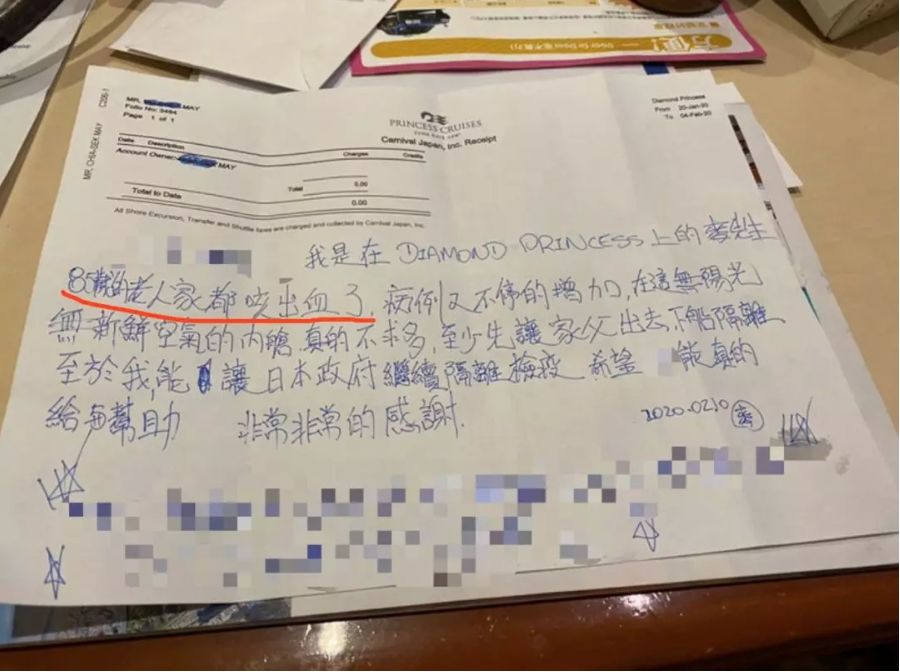 方便!
MR. MAY
Page 1 of 1
PRINCESS CRUISES
Carnival Japan, Inc. Receipt
Diamond Princess
From 20-Jan-20
To 04-Feb-20
Date Description Charges Credits
Account Owner- MAY
Total 0.00
Total to Date 0.00
All Shore Excursion, Transfer and Shuttle fares are charged and collected by Carnival Japan, Inc.
我是在 DIAMOND PRINCESS 上的 先生
85歲的老人家都咳出血了,病例又不停的增加,在這無陽光
無新鮮空氣的內艙,真的不求多,至少先讓家父出去、下船隔離
至於我,能讓日本政府繼續隔離檢疫 希望 能真的
給 幫助 非常非常的感謝.
2020.0210